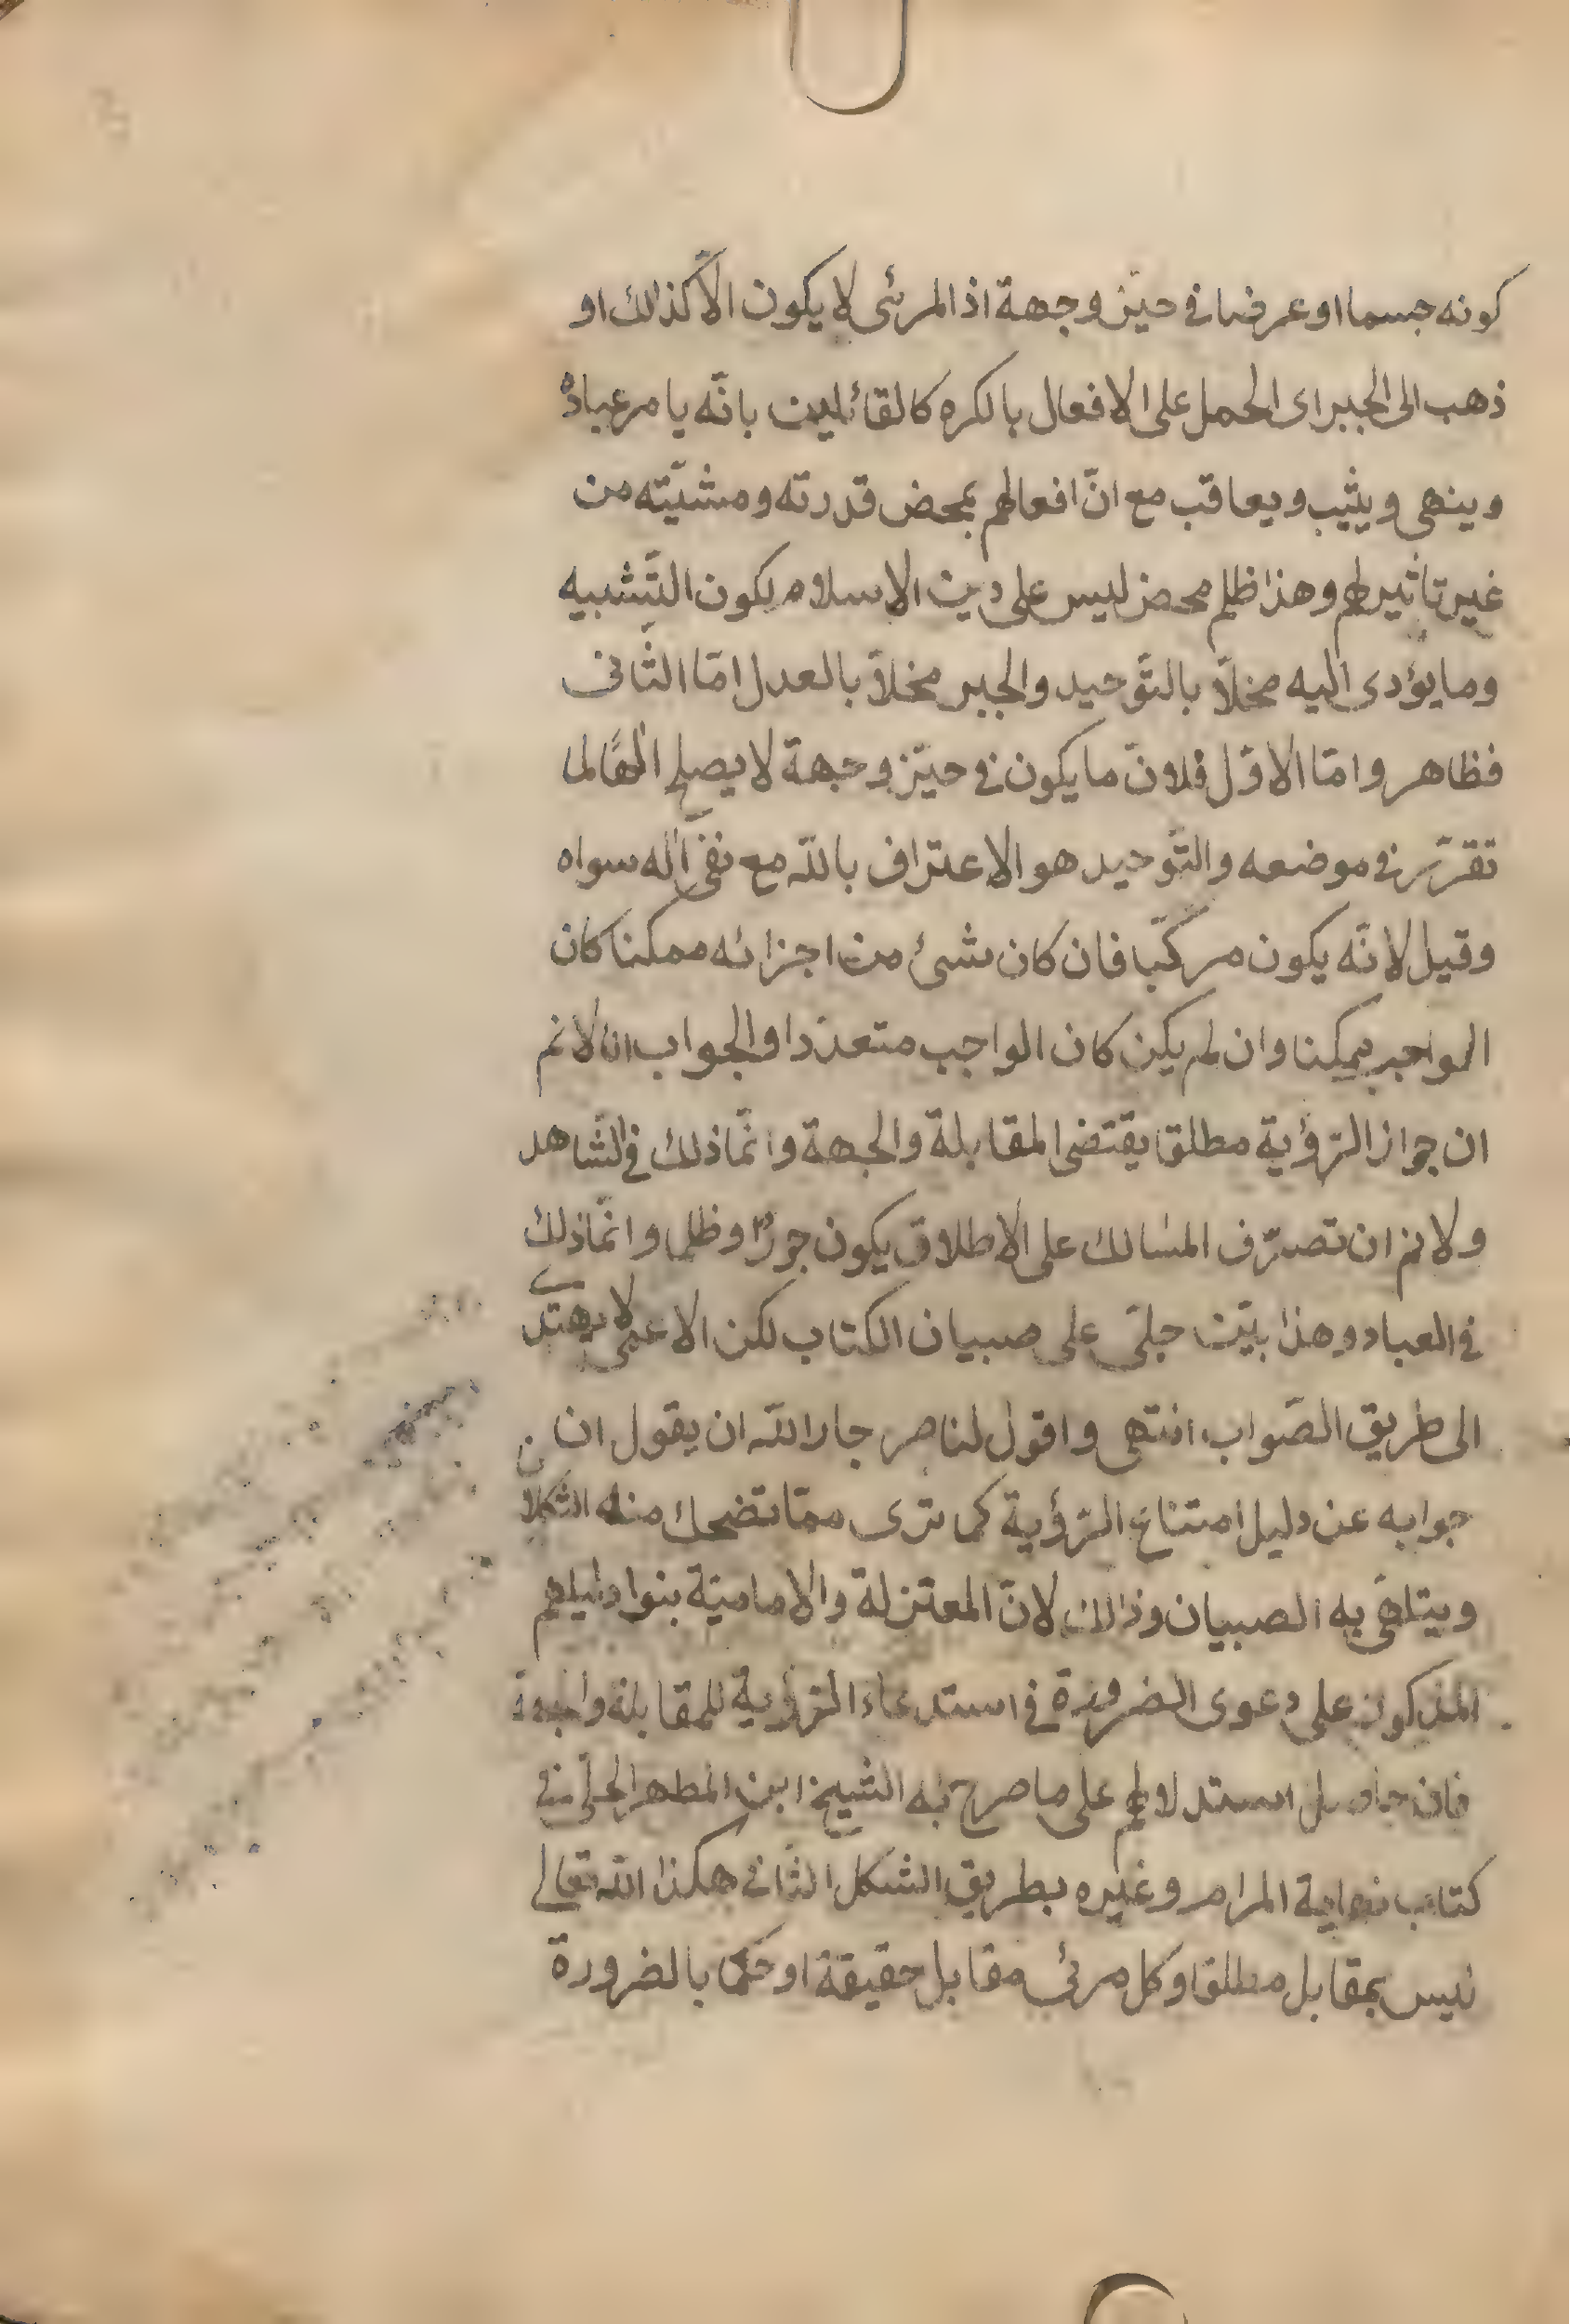 كونه جسما او عرضا في حيّز وجهة اذ المرئى لا يكون الّا كذلك او
ذهب الى الجبر اى الحمل على الافعال بالكره كالقائلين بانّه يامر عباده
وينهى ويثيب ويعاقب مع انّ افعالهم بمحض قدرته ومشيّته من
غير تاثير لهم وهذا ظلم محض ليس على دين الاسلام لكون التّشبيه
وما يؤدى اليه مخلّا بالتّوحيد والجبر مخلّا بالعدل امّا الثّانى
فظاهر وامّا الاوّل فلانّ ما يكون في حيّز وجهة لا يصلح الٰهًا لما
تقرّر في موضعه والتّوحيد هو الاعتراف بالله مع نفى اله سواه
وقيل لانّه يكون مركّبا فان كان شئ من اجزائه ممكنا كان
الواجب ممكنا وان لم يكن كان الواجب متعدّدا والجواب انا لانم
ان جواز الرّؤية مطلقا يقتضى المقابلة والجهة وانّما ذلك في الشّاهد
ولانم ان تصرّف المالك على الاطلاق يكون جورًا وظلما وانّما ذلك
في العباد وهذا بيّن جلّى على صبيان الكتاب لكن الاعمى لا يهتدى
الى طريق الصّواب انتهى واقول لناصر جار الله ان يقول ان
جوابه عن دليل امتناع الرّؤية كما ترى ممّا تضحك منه الثكلان
ويتلهّى به الصبيان وذلك لانّ المعتزلة والاماميّة بنوا دليلهم
المذكور على دعوى الضرورة في استدعاء الرّؤية للمقابلة والجهة
فان حاصل استدلالهم على ما صرح به الشيخ ابن المطهر الحلّى في
كتاب نهاية المرام وغيره بطريق الشكل الثّانى هكذا الله تعالى
ليس بمقابل مطلقا وكل مرئى مقابل حقيقة او حكما بالضرورة